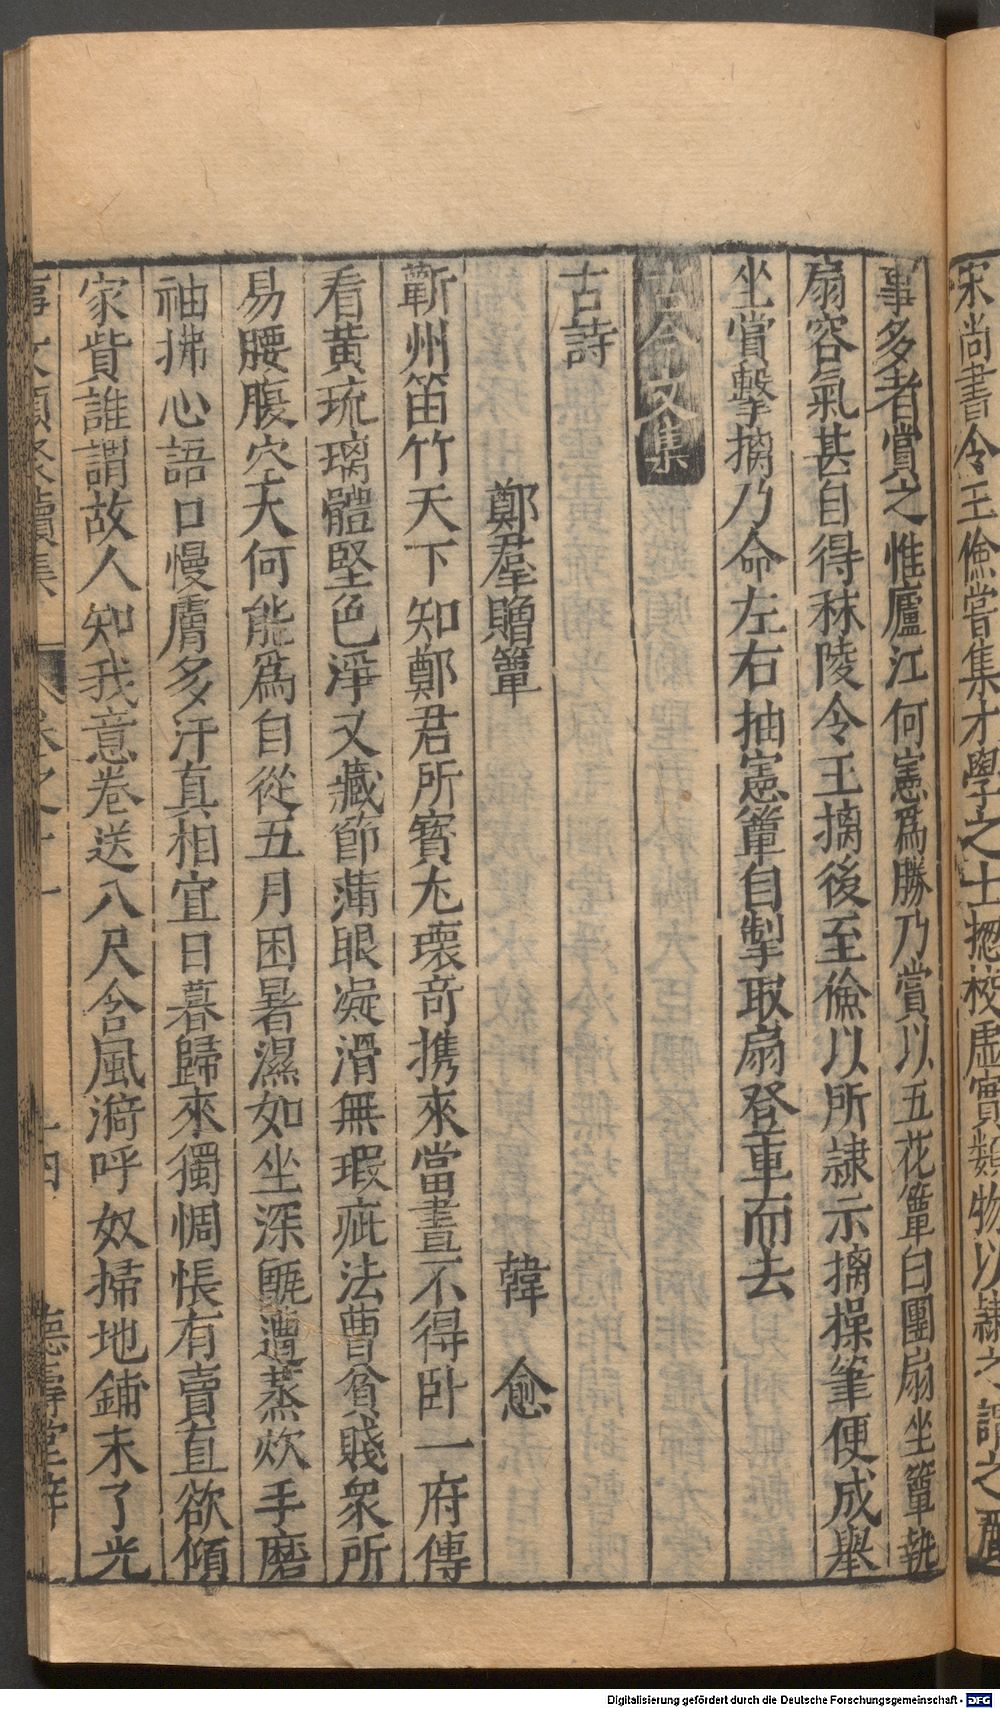 宋尚書令王儉嘗集才學之士揔校虛實類物以隸之謂之
事多者賞之惟廬江何憲爲勝乃賞以五花簟白團扇坐簟執
扇容氣甚自得秣陵令王摛後至儉以所隸示摛操筆便成舉
坐賞擊摛乃命左右抽憲簟自掣取扇登車而去
古今文集
古詩
鄭羣贈簟 韓愈
蘄州笛竹天下知鄭君所寶尤瓌奇携來當晝不得卧一府傳
看黄琉璃體堅色淨又藏節蒲眼凝滑無瑕疵法曹貧賤衆所
易腰腹空大何能爲自從五月困暑濕如坐深甑遭蒸炊手磨
袖拂心語口慢膚多汗真相宜日暮歸來獨惆悵有賣直欲傾
家貲誰謂故人知我意卷送八尺含風漪呼奴掃地鋪未了光
事文類聚續集 卷之十一 十四 德壽堂梓
Digitalisierung gefördert durch die Deutsche Forschungsgemeinschaft - DFG